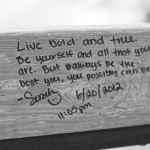 Live bold and true.
Be yourself and all that you
are. But always be the
best you, you possibly can be
-Sarah
6/20/2012
11:03pm